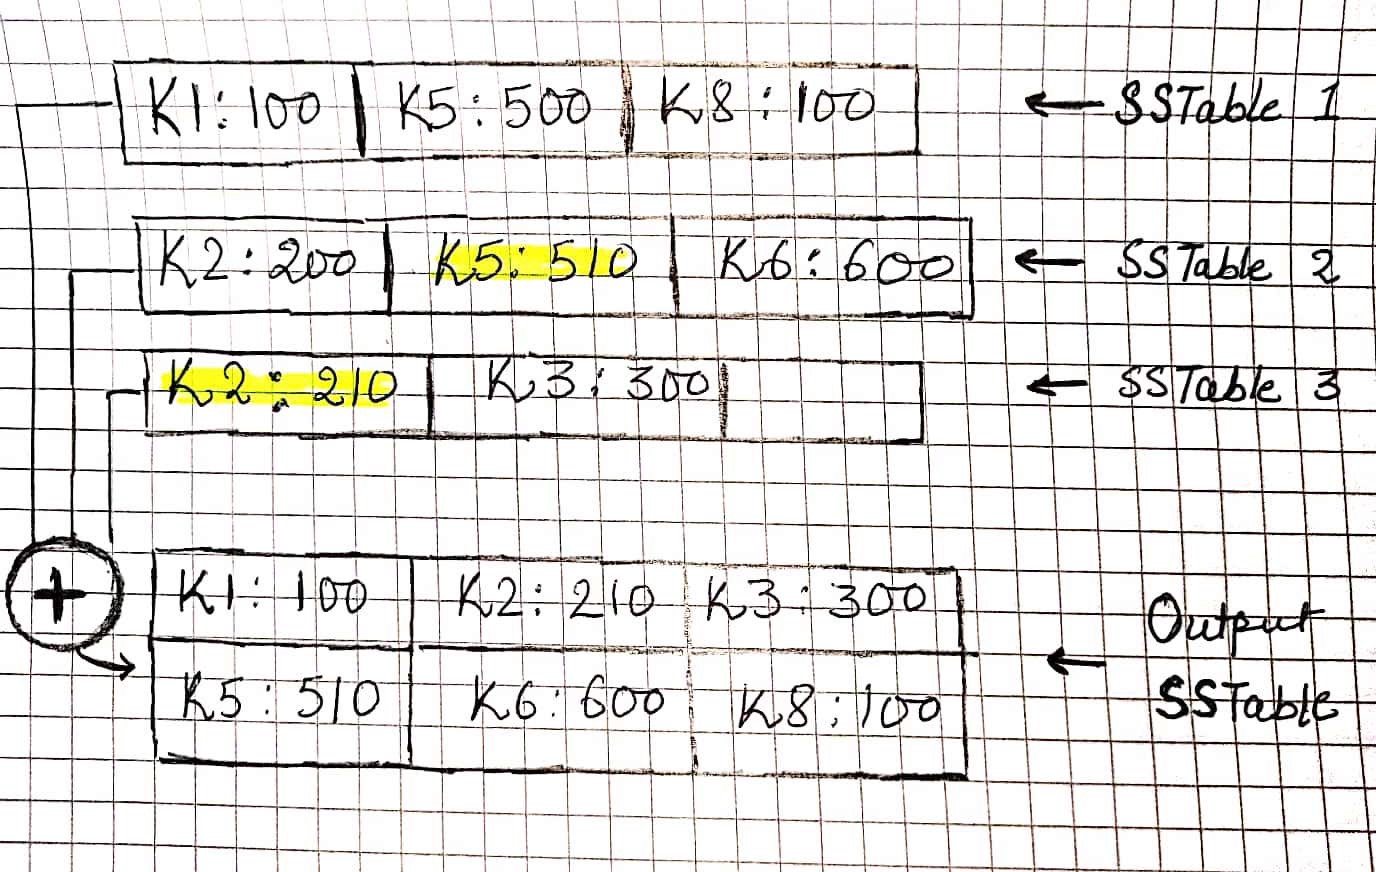 K1: 100 K5: 500 K8: 100 ← SSTable 1
K2: 200 K5: 510 K6: 600 ← SSTable 2
K2: 210 K3: 300 ← SSTable 3
+
K1: 100 K2: 210 K3: 300
K5: 510 K6: 600 K8: 100
← Output
SSTable